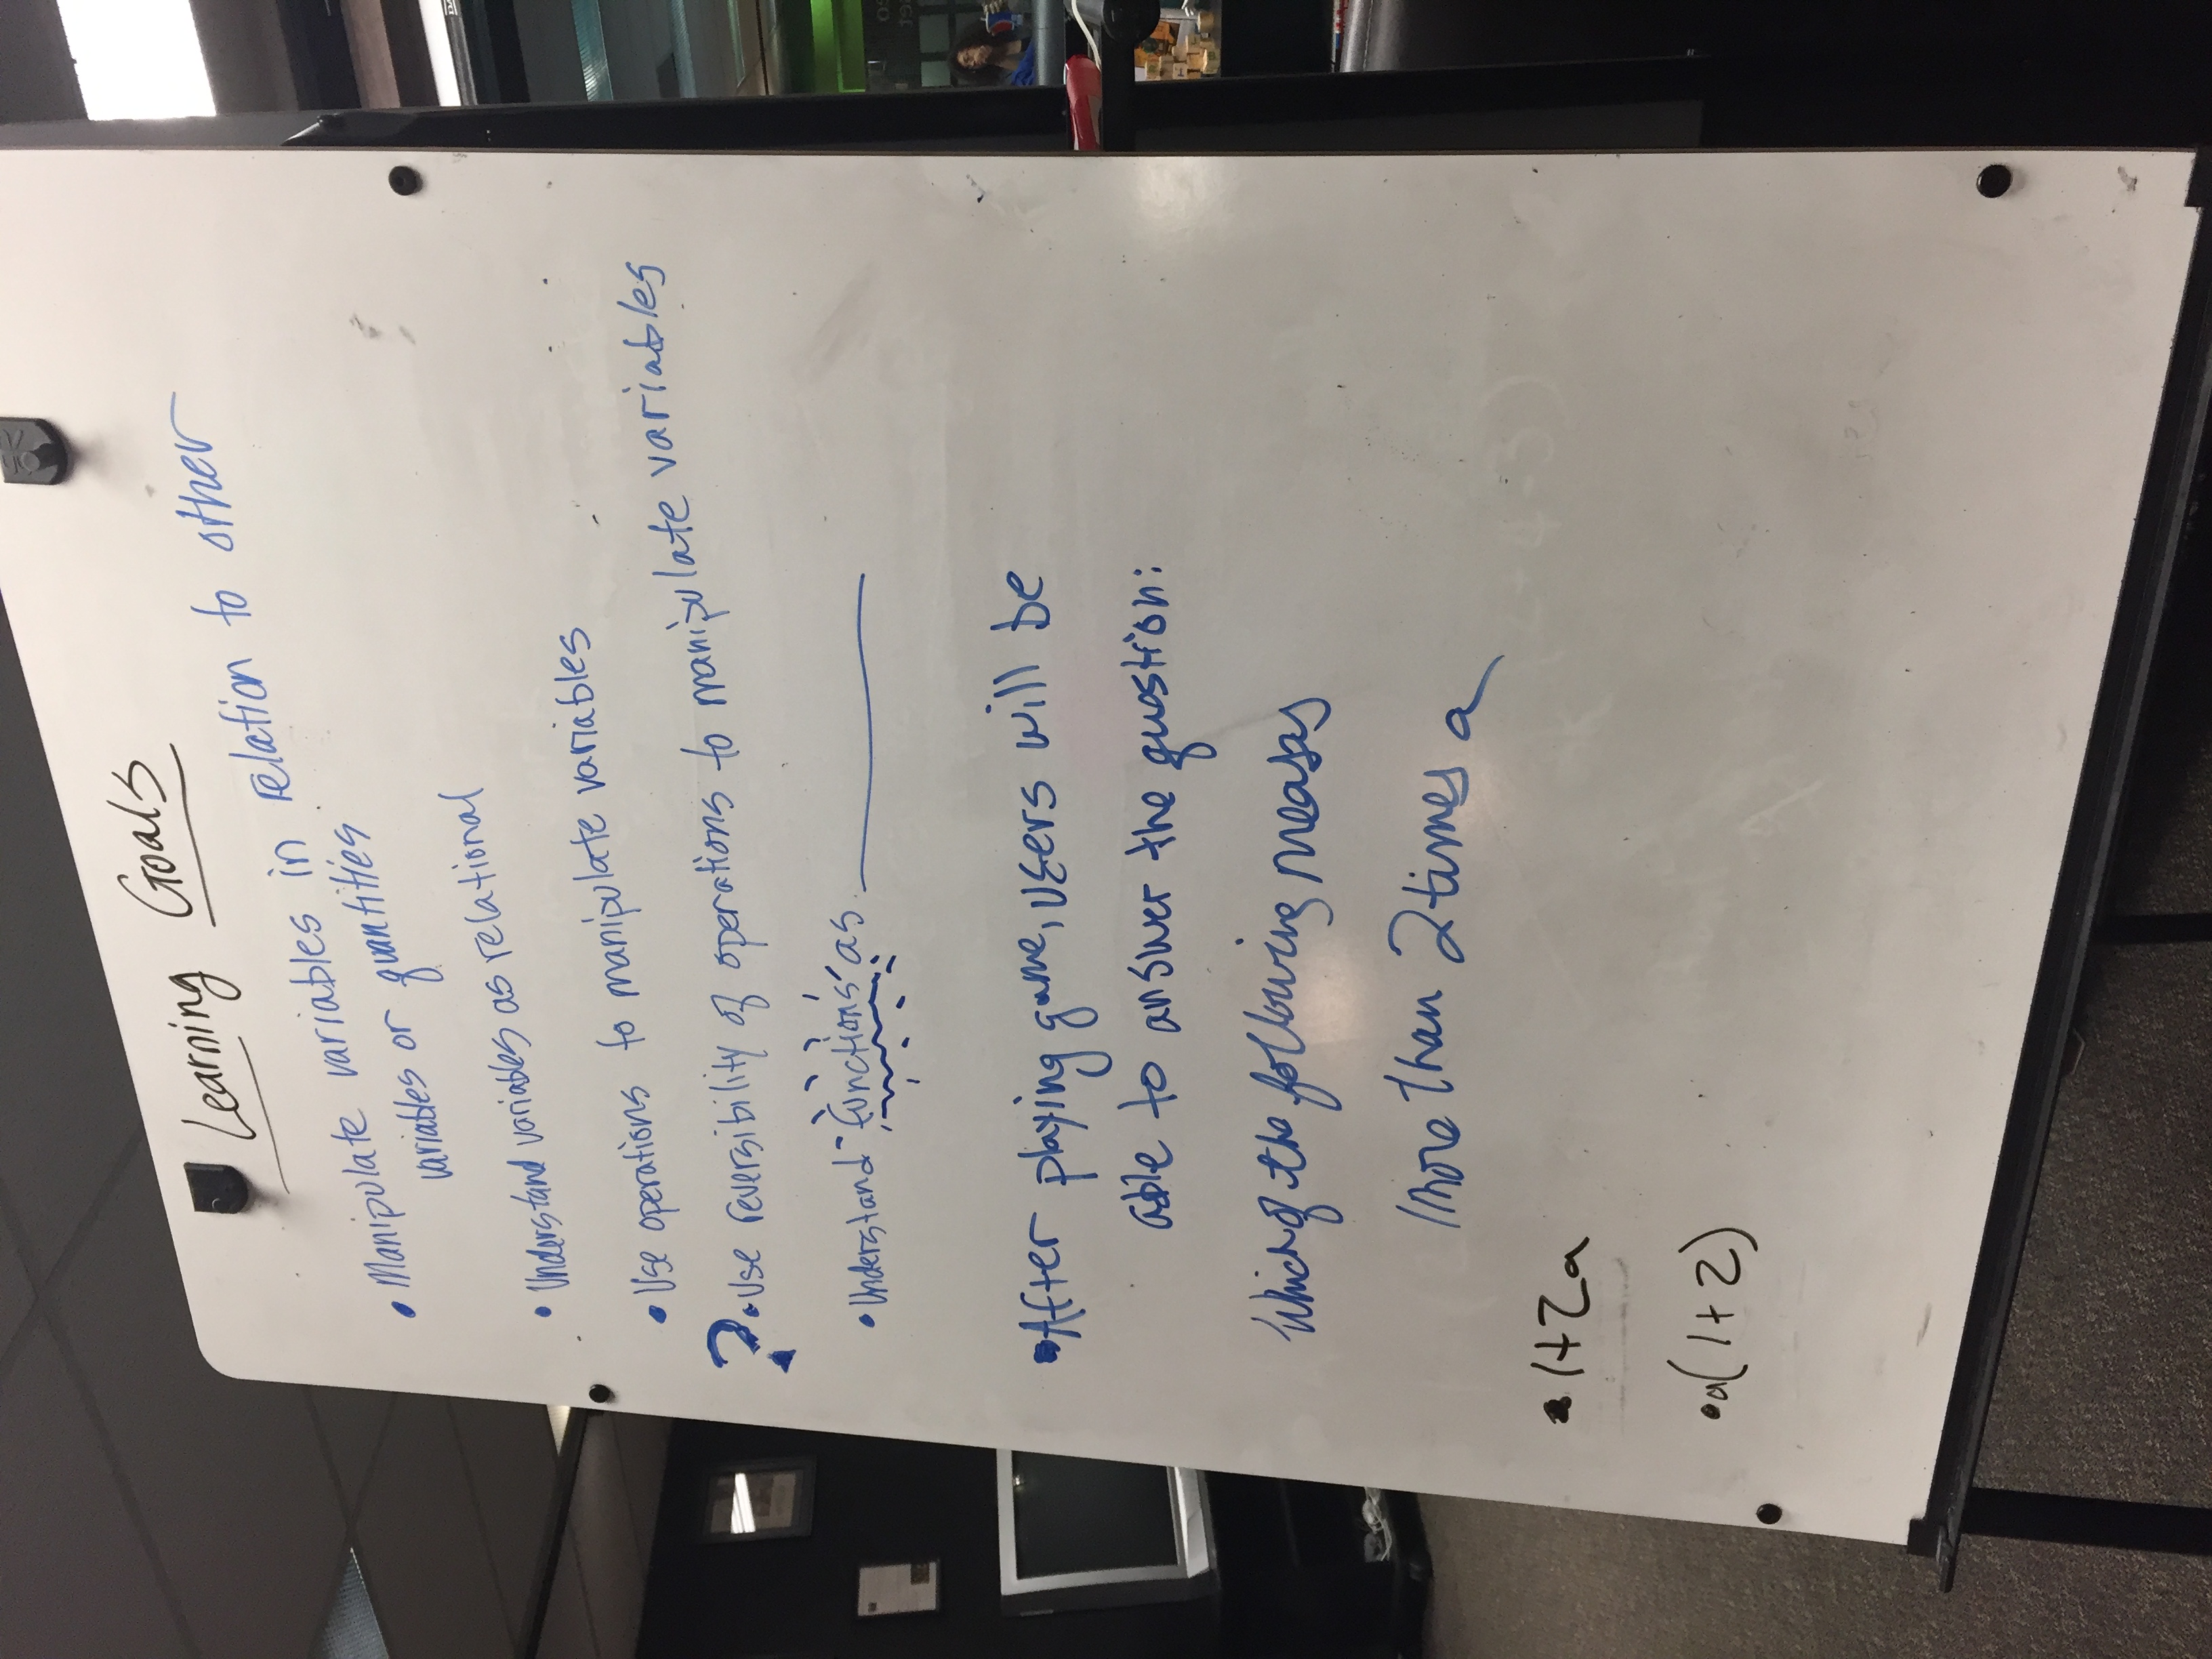 Learning Goals
• Manipulate variables in relation to other
variables or quantities
• Understand variables as relational
• Use operations to manipulate variables
? • Use reversibility of operations to manipulate variables
• Understand functions as ________
• After playing game, users will be
able to answer the question:
Which of the following means
more than 2 times a
• 1+2a
• a(1+2)